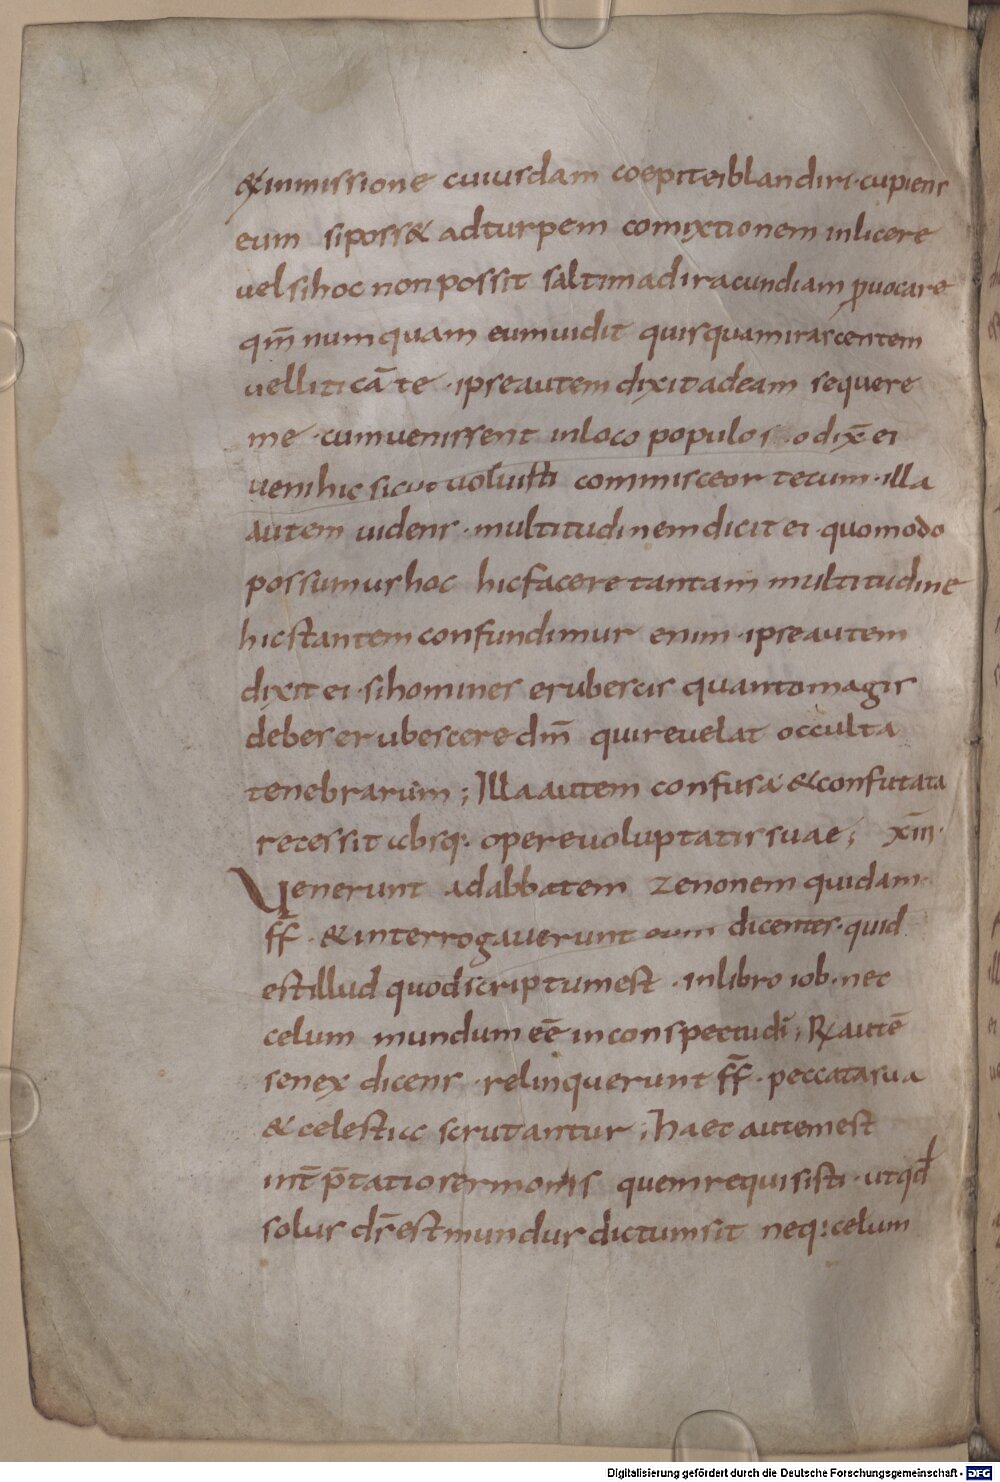 &inmissione cuiusdam coepit ei blandiri · cupiens
eum siposs& adturpem comixtionem inlicere
vel sihoc non possit saltim adiracundiam ꝓuocare
qm̄ numquam eumuidit quisquam irascentem
vel liticāte · ipse autem dixit adeam sequere
me · cum uenissent inloco populos · o dix̄ ei
veni hic sicut voluisti commisceor tecum · illa
autem uidens · multitudinem dicit ei · quomodo
possumus hoc hic facere tantam multitudine
hic stantem confundimur enim · ipse autem
dixit ei · si homines erubescis quanto magis
debes erubescere dm̄ qui reuelat occulta
tenebrarum ; Illa autem confusa & confutata
recessit absq: opere voluptatis suae ; xiiii ·
Venerunt ad abbatem zenonem quidam ·
ff̄ · & interrogauerunt eum dicentes · quid
est illud quod scriptum est · in libro iob · nec
celum mundum eē in conspectu dī ; R autē
senex dicens · relinquerunt ff̄ · peccata sua
& celestia scrutantur ; haec autem est
int̄p̄tatio sermonis quem requisisti · ut qđ
solus ds̄ est mundus dictum sit neq: celum
Digitalisierung gefördert durch die Deutsche Forschungsgemeinschaft - DFG